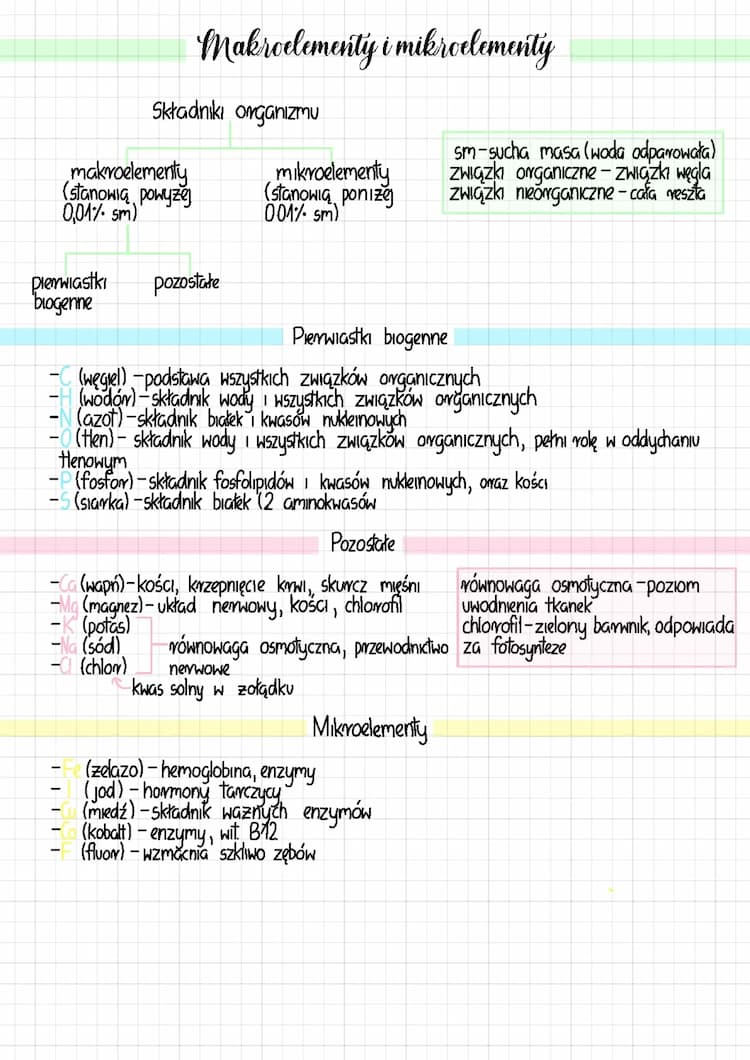 Makroelementy i mikroelementy
Składniki organizmu
makroelementy
(stanowią powyżej
0,01% sm)
mikroelementy
(stanowią poniżej
001% sm)
sm-sucha masa (woda odparowała)
związki organiczne - związki węgla
związki nieorganiczne - cała reszta
pierwiastki
biogenne
pozostałe
Pierwiastki biogenne
-C (węgiel) -podstawa wszystkich związków organicznych
-H (wodór)-składnik wody i wszystkich związków organicznych
-N (azot)-składnik białek i kwasów nukleinowych
-O (tlen)- składnik wody i wszystkich związków organicznych, pełni rolę w oddychaniu
tlenowym
-P (fosfor)-składnik fosfolipidów i kwasów nukleinowych, oraz kości
-S (siarka) -składnik białek (2 aminokwasów
Pozostałe
-Ca (wapń)-kości, krzepnięcie krwi, skurcz mięśni
-Mg (magnez)- układ nerwowy, kości, chlorofil
-K (potas)
-Na (sód)
-Cl (chlor)
równowaga osmotyczna, przewodnictwo
nerwowe
kwas solny w żołądku
równowaga osmotyczna -poziom
uwodnienia tkanek
chlorofil-zielony barwnik, odpowiada
za fotosynteze
Mikroelementy
-Fe (żelazo) - hemoglobina, enzymy
-I (jod) - hormony tarczycy
-Cu (miedź) -składnik ważnych enzymów
-Co (kobalt) - enzymy, wit B12
-F (fluor) - wzmacnia szkliwo zębów